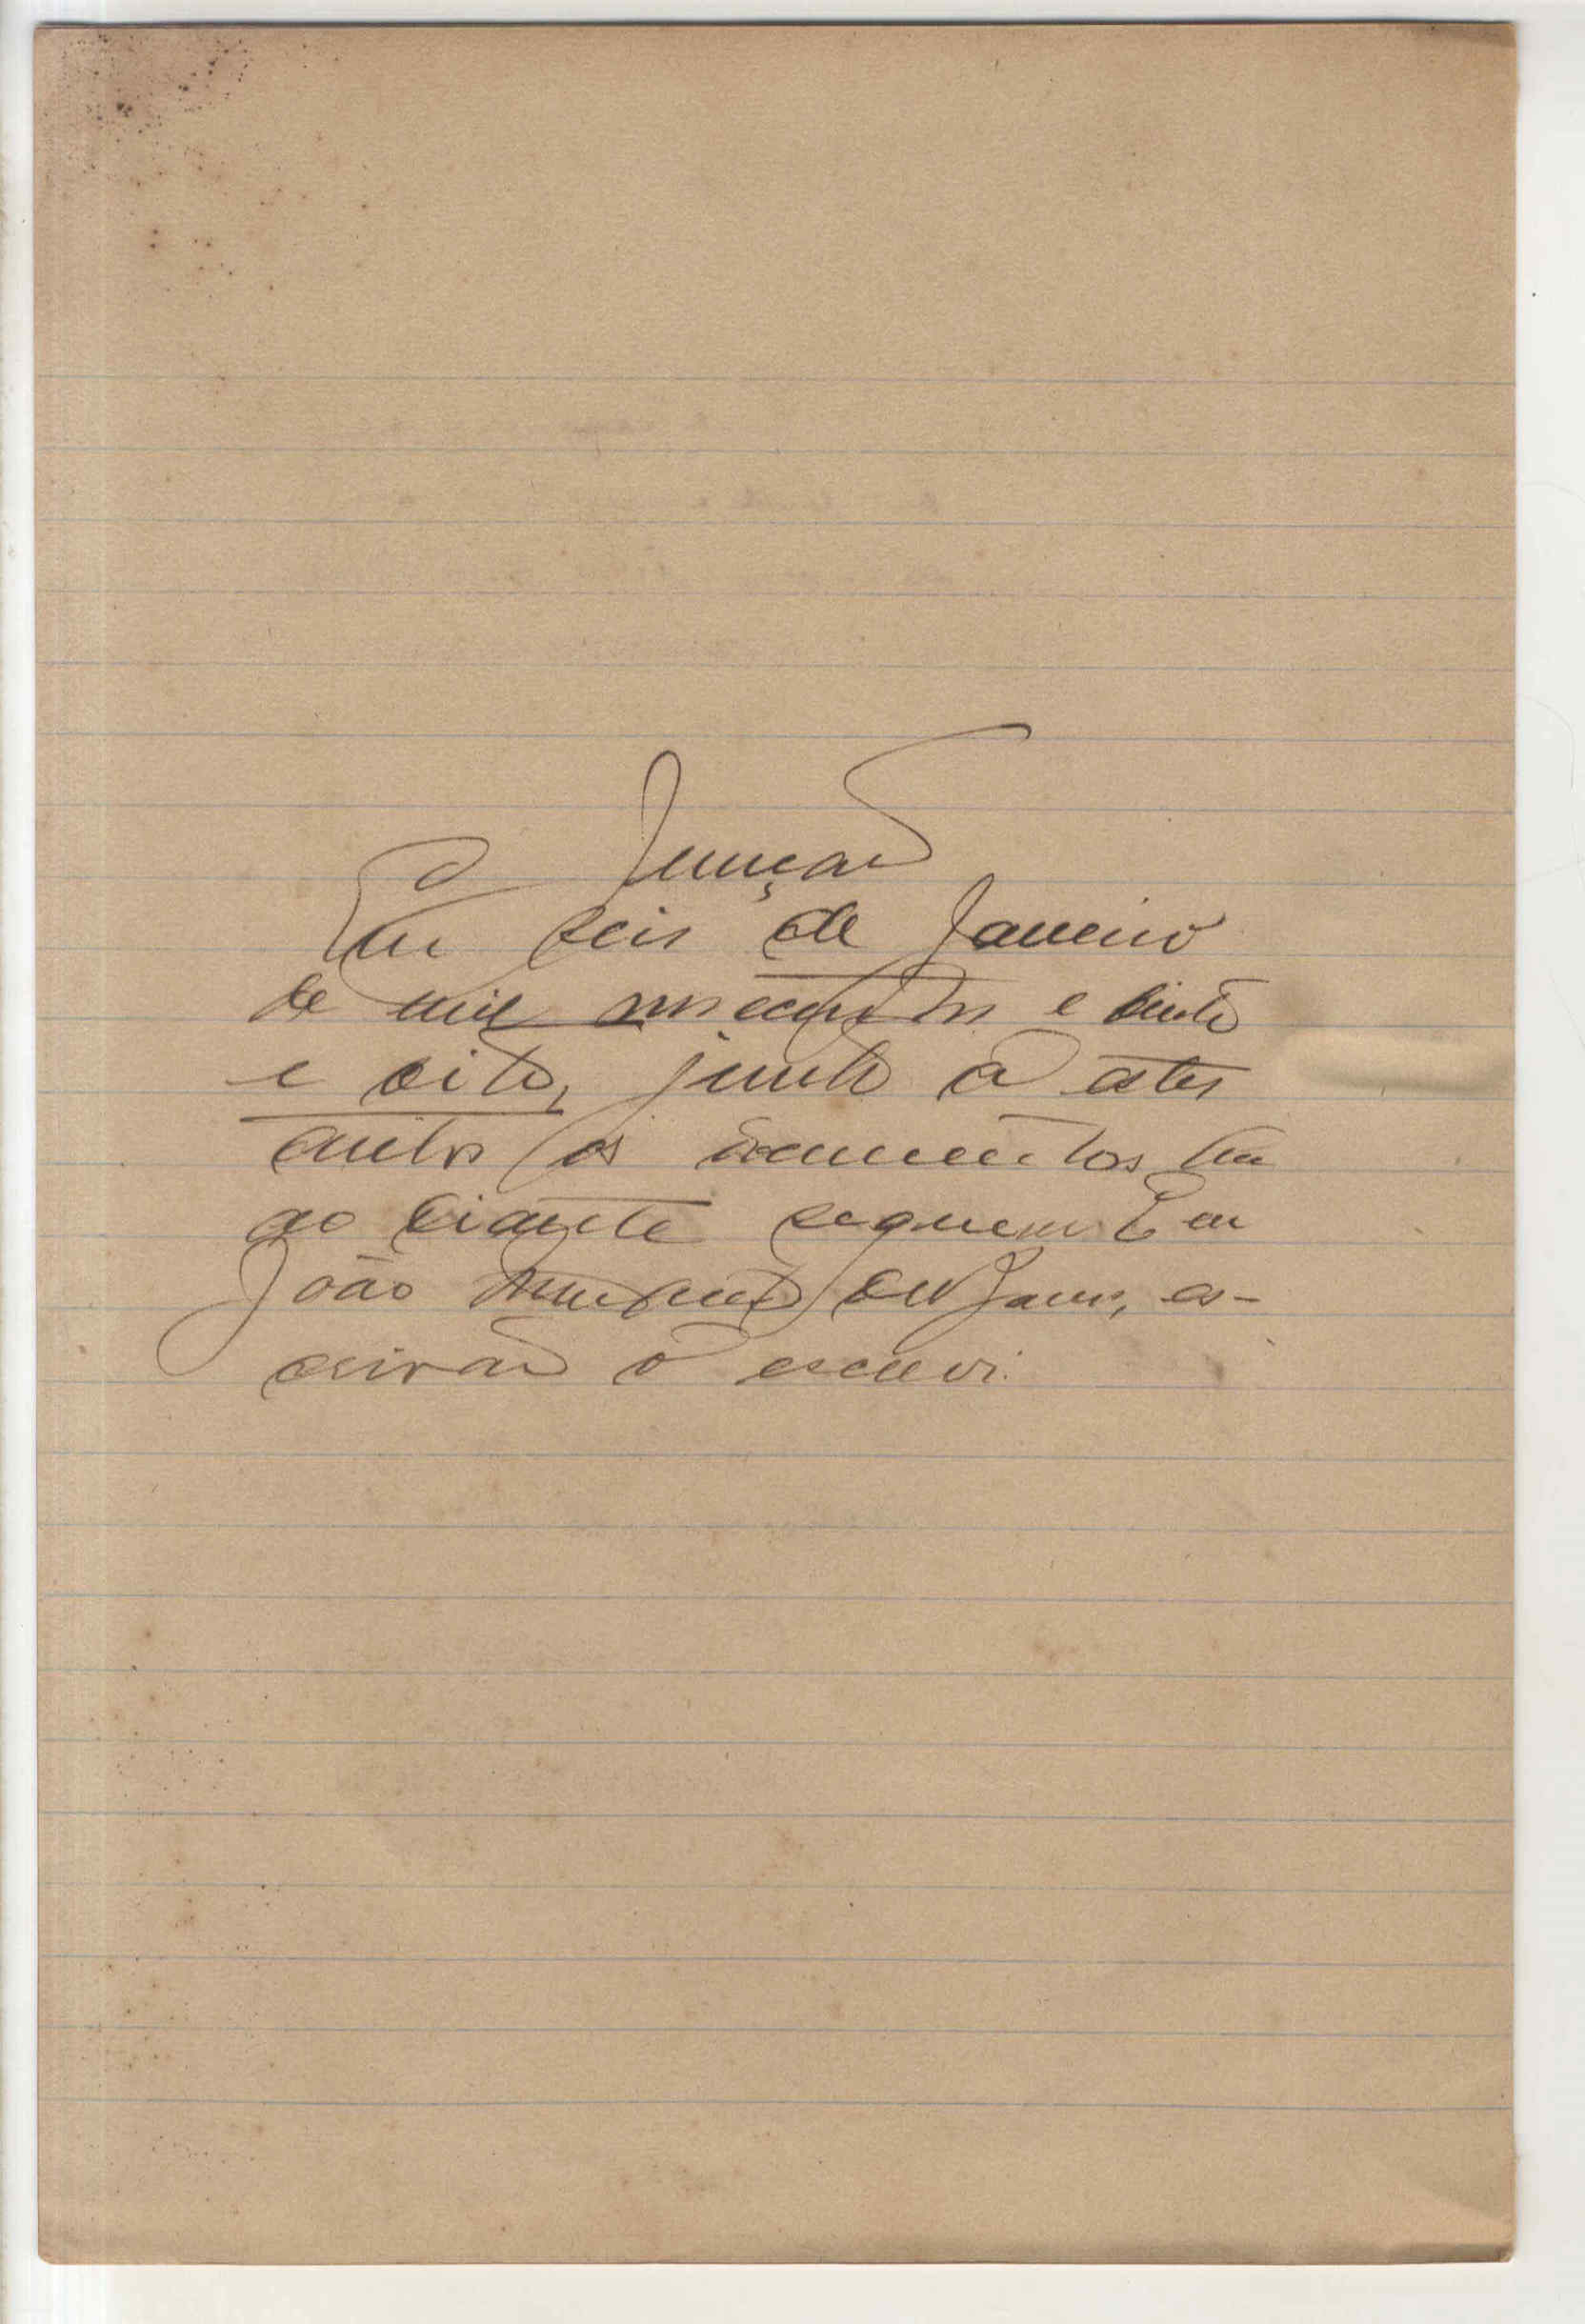 Junção
Em seis de Janeiro
de mil novecentos e vinte
e oito, junto a estes
autos os documentos que
ao diante seguem. Eu
João de Jesus, es-
crivão o escrevi.